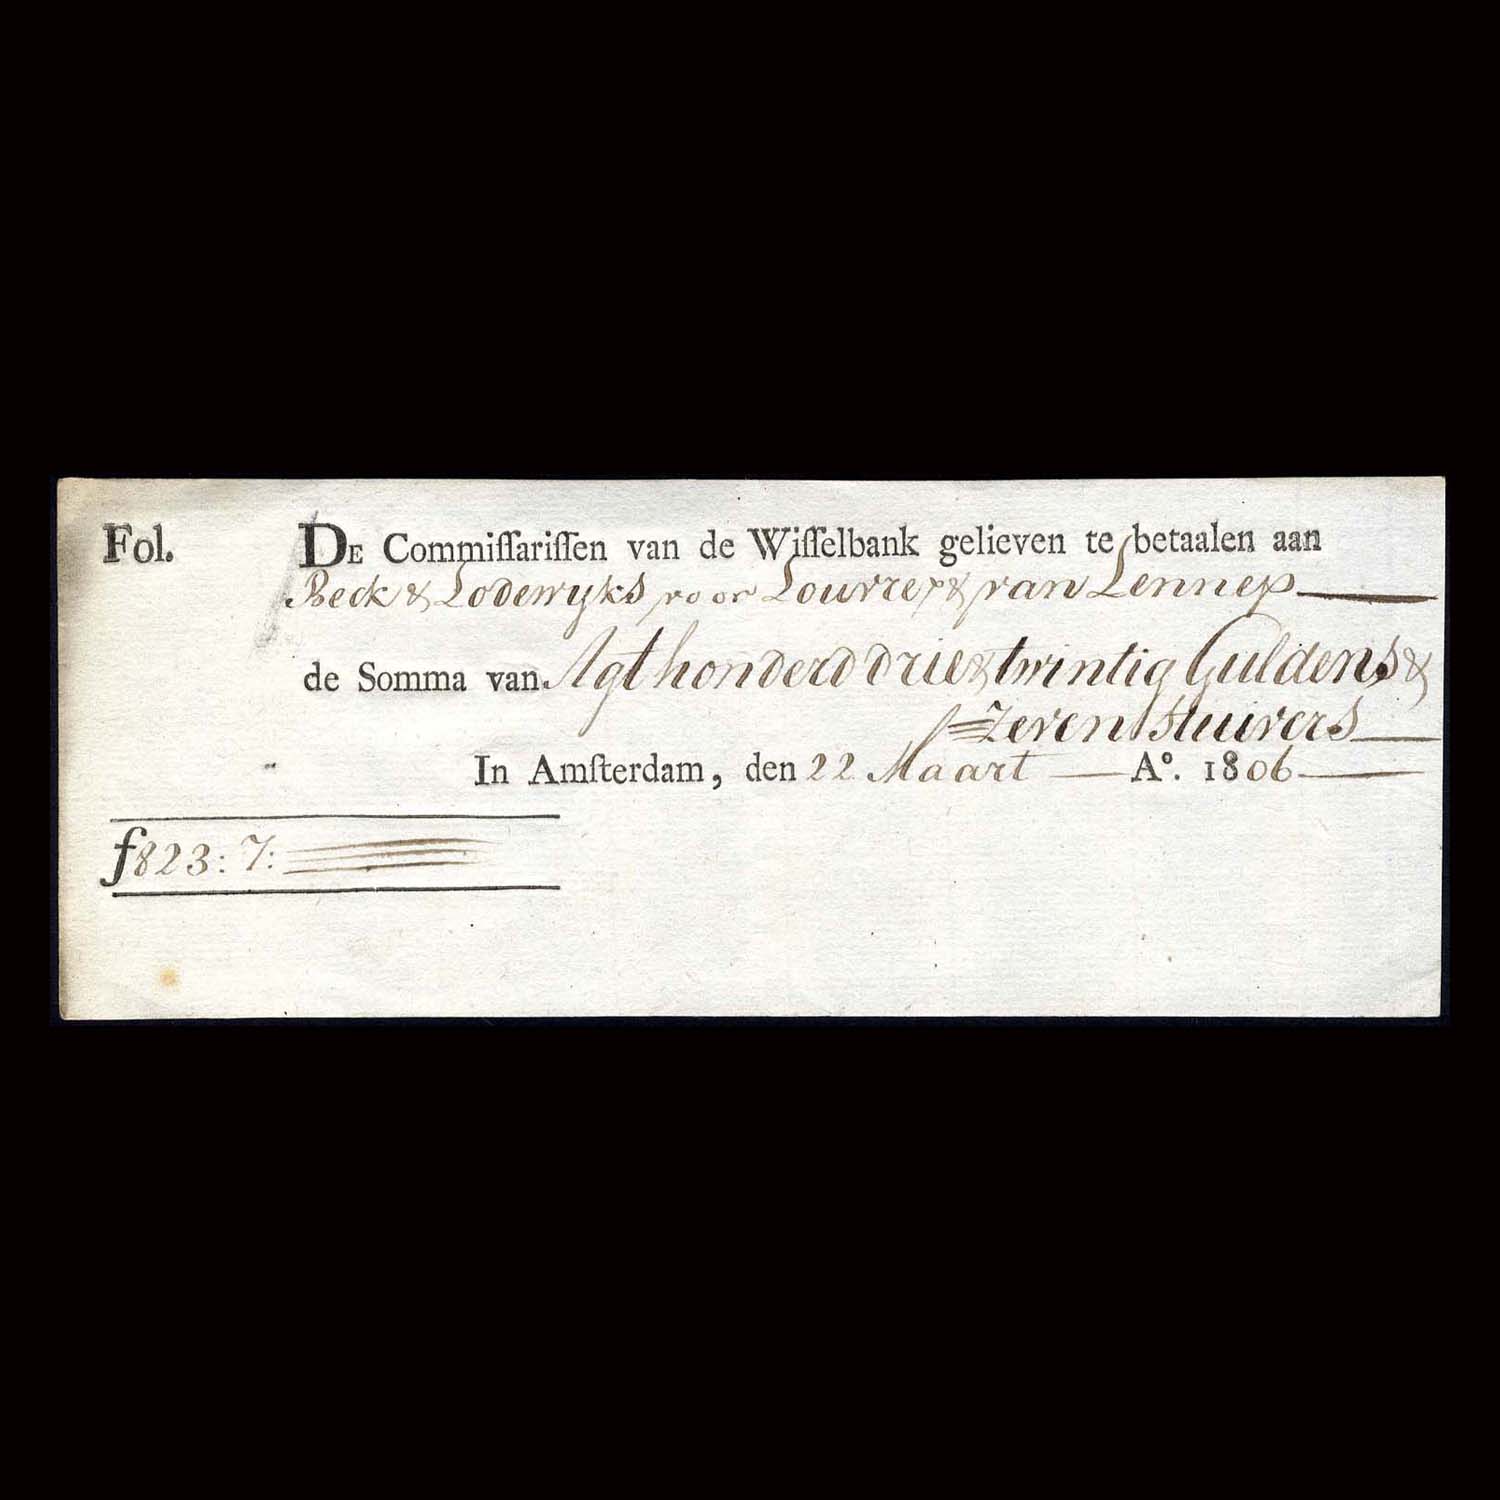 Fol. DE Commiſſariſſen van de Wiſſelbank gelieven te betaalen aan
Beck & Lodewyks voor Louvrex & van Lennep
de Somma van Agthonderd drie & twintig Guldens &
Zeven Stuivers
In Amſterdam, den 22 Maart Aº. 1806
ƒ823:7: